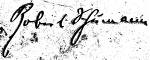 Robert Schumann